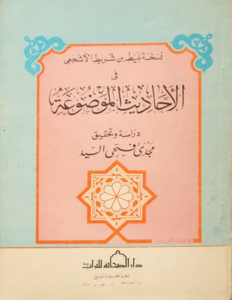 نسخة نبيط بن شريط الأشجعي
في
الأحاديث الموضوعة
دراسة وتحقيق
مجدي فتحي السيد
دار الصحابة للتراث